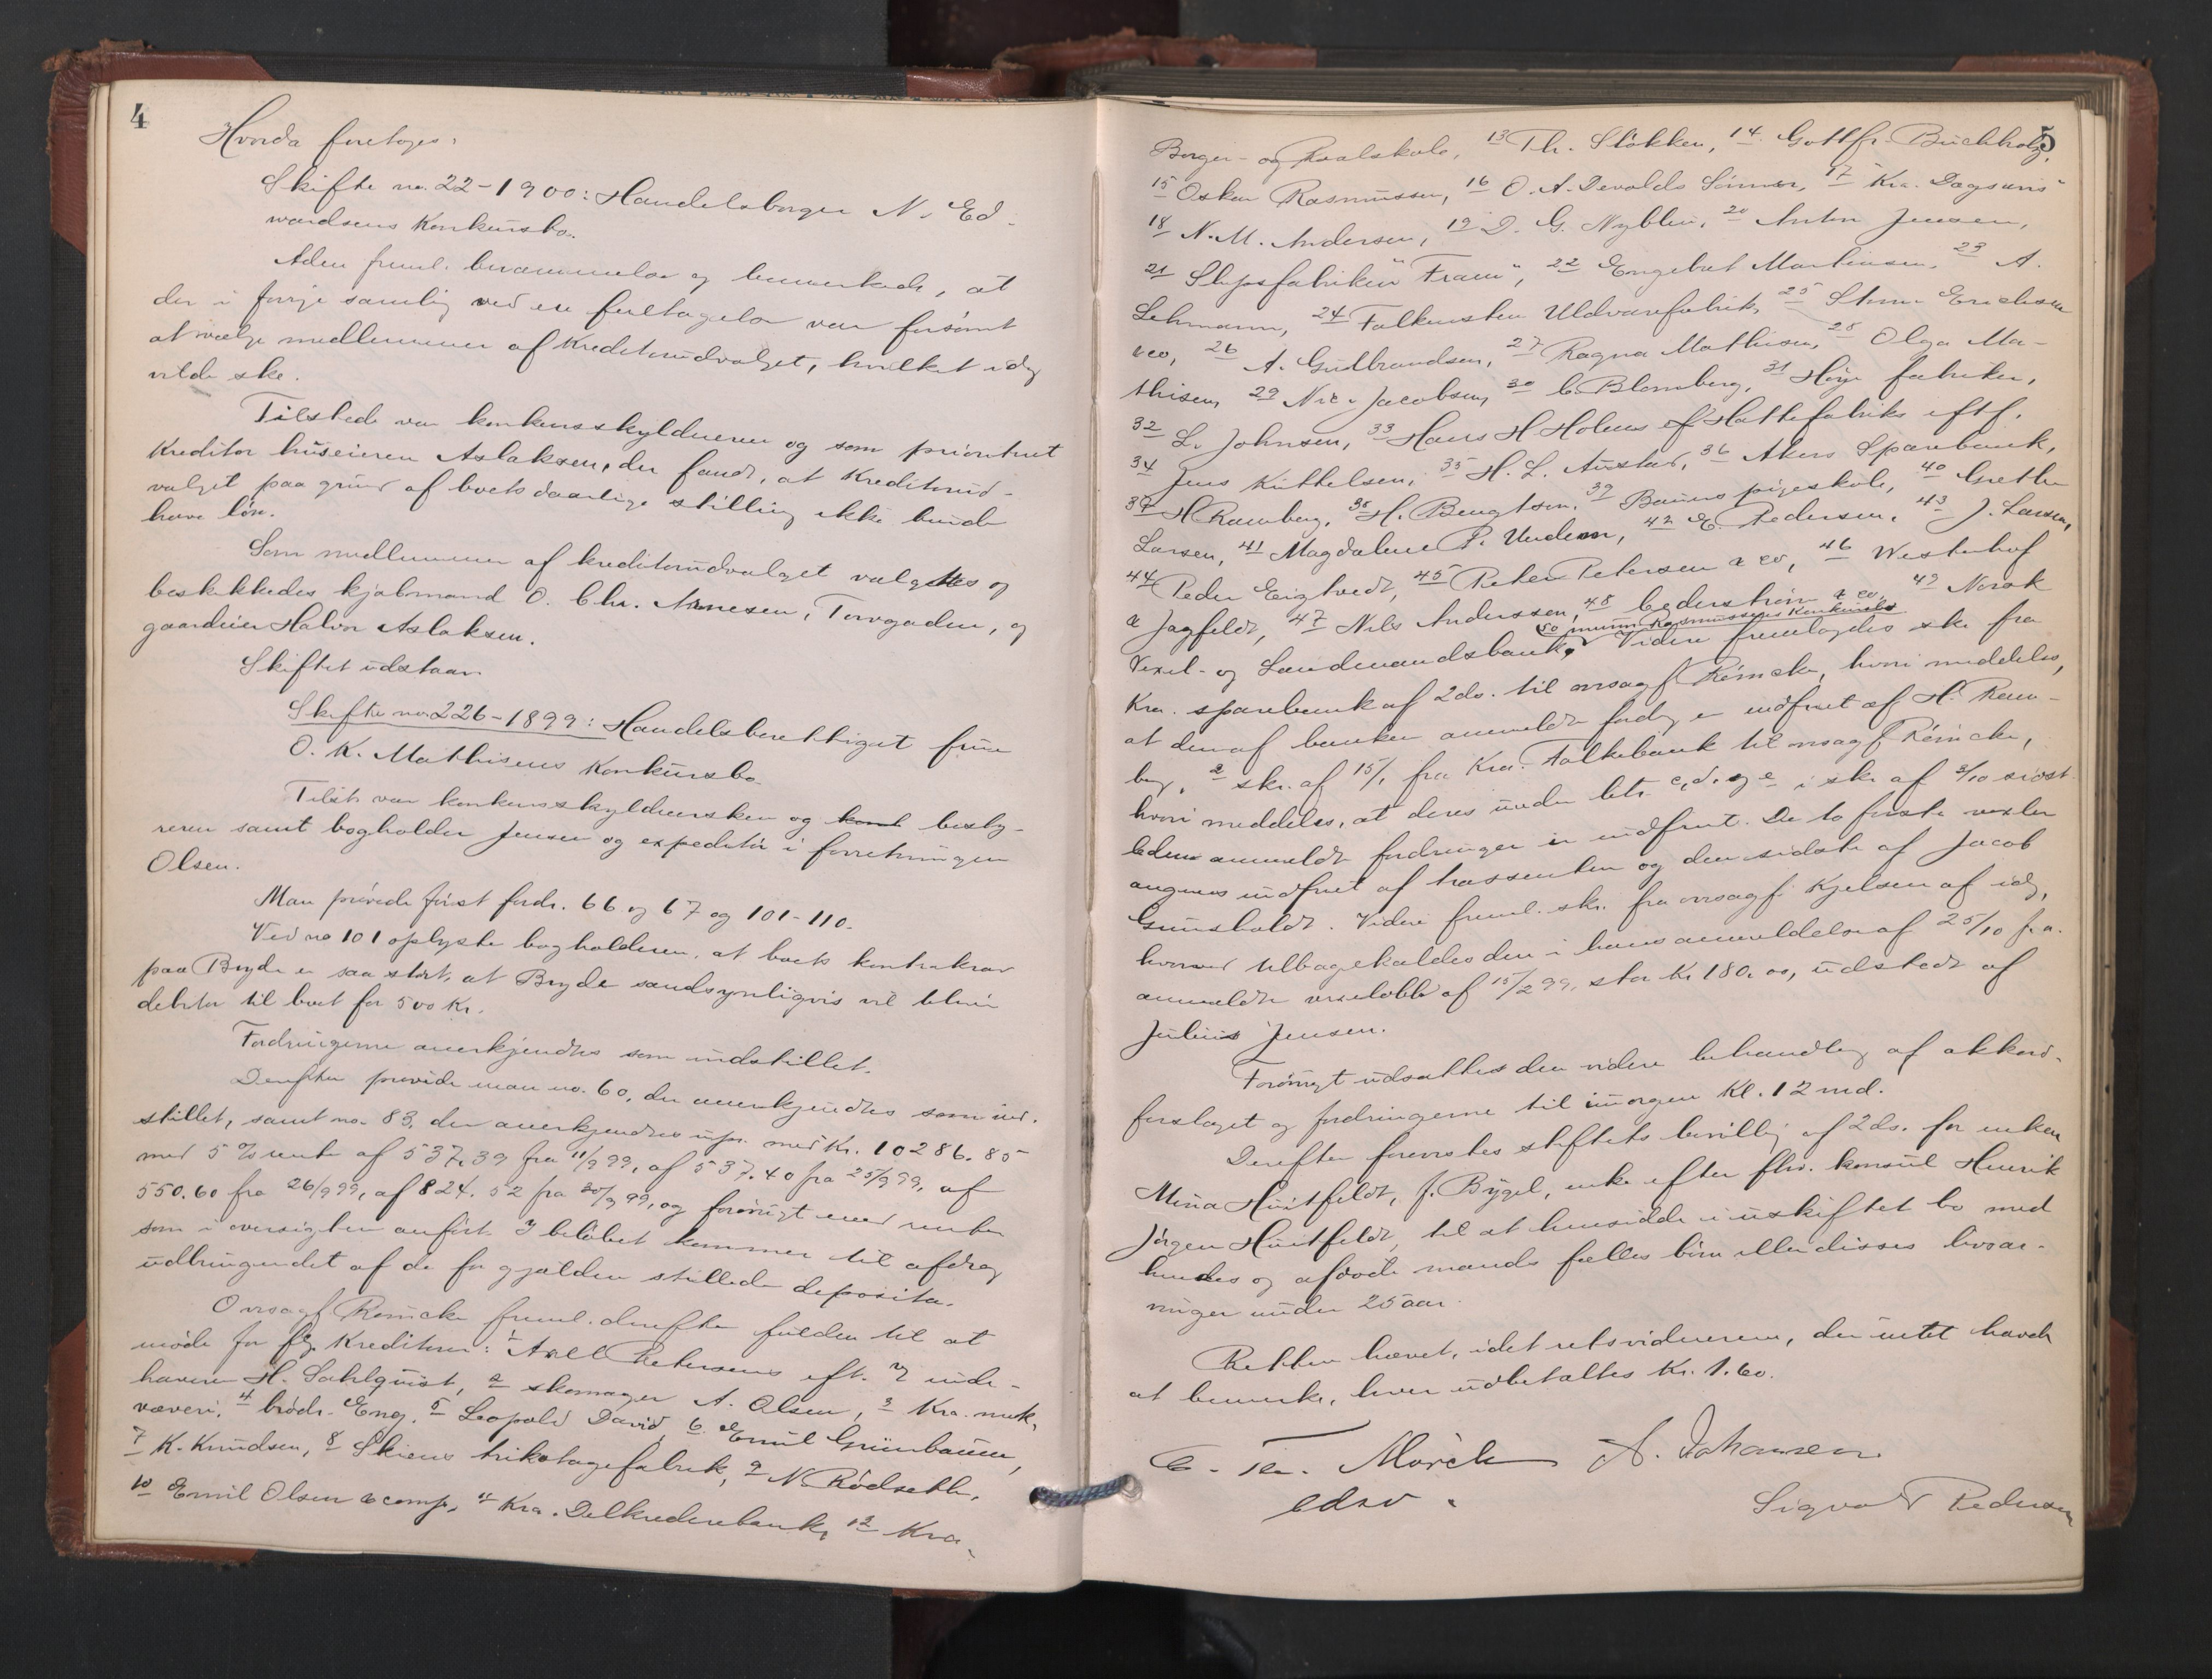 4
Hvorda foretoges:
Skifte no. 22-1900: Handelsborger N. Ed-
wardsens Konkursbo.
Aden freml. berammelse og bemærkede, at
der i forrige samling ved en forglemmelse var forsömt
at vælge medlemmer af Kreditorudvalget, hvilket idag
vilde ske.
Tilstede var konkursskyldneren og som prioritert
Kreditor huseieren Aslaksen, der fandt, at Kreditorud-
valget paa grund af boets daarlige stilling ikke burde
have lön.
Som medlemmer af kreditorudvalget valgtes og
beskikkedes kjöbmand O. Chr. Arnesen, Torvgaden, og
gaardeier Halvor Aslaksen.
Skiftet udstaar.
Skifte no. 226-1899: Handelsberettiget frue
O. K. Mathisens Konkursbo
Tilst. var konkursskyldnersken og besty-
reren samt bogholder Jensen og expeditör i forretningen
Olsen.
Man prövede först fordr. 66 og 67 og 101-110.
Ved no 101 oplyste bogholderen, at boets kontrakrav
paa Bryde er saa stort, at Bryde sandsynligvis vil blive
debitor til boet for 500 Kr.
Fordringerne anerkjendtes som indstillet.
Derefter prövede man no. 60, der anerkjendtes som ind-
stillet, samt no. 83, der anerkjendtes upr. med Kr. 10286.85
med 5 % rente af 537.39 fra 11/9 99, af 537.40 fra 25/9 99, af
550.60 fra 26/9 99, af 824.52 fra 30/9 99, og forövrigt med renter
som i oversigten anfört. I belöbet kommer til afdrag
udbringendet af de for gjælden stillede deposita.
Ovrsagf. Reincke freml. derefter fuldm. til at
möde for flg. Kreditorer: 1 Axel Petersens eft. v inde-
haveren H. Sahlquist, 2 skomager A. Olsen, 3 Kra. mek.
væveri, 4 brödr. Eng, 5 Leopold David, 6 Emil Grünbaum,
7 K. Knudsen, 8 Skiens trikotagefabrik, 9 N. Rödseth,
10 Emil Olsen & comp., 11 Kra. Delkrederebank, 12 Kra.
5
Borger- og Realskole, 13 Th. Stökken, 14 Gottfr. Buchholz,
15 Oskar Rasmussen, 16 O. A. Devolds Sönner, 17 Kra. Dagsavis
18 N. M. Andersen, 19 D. G. Nyblin, 20 Anton Jensen,
21 Slipsfabriken "Fram", 22 Engebret Martinsen, 23 A.
Lehmann, 24 Falkensten Uldvarefabrik, 25 Sturm Erichsen
& co, 26 A. Gulbrandsen, 27 Ragna Mathisen, 28 Olga Ma-
thisen, 29 Nic. Jacobsen, 30 C. Blomberg, 31 Höye fabriker,
32 L. Johnsen, 33 Hans H Holms Hattefabriks eftf.
34 Jens Kittelsen, 35 H. L. Austad, 36 Akers Sparebank,
37 H Ramberg, 38 H. Bengtson, 39 Bauns pigeskole, 40 Grethe
Larsen, 41 Magdalene P. Undem, 42 E. Pedersen, 43 J. Larsen,
44 Peder Eigtvedt, 45 Peter Petersen & co, 46 Westerhof
& Jagfeldt, 47 Nils Anderssen, 48 Cederström & co, 49 Norsk
50 Rasmussens Konkursbo
Vexel- og Landmandsbank, Videre fremlagdes skr. fra
Kra. sparebank af 2ds. til ovrsagf. Reincke, hvori meddeles,
at den af banken anmeldte fordr. er indfriet af H. Ram-
berg, 2 skr. af 15/1 fra Kra. Folkebank til ovrsagf. Reincke,
hvori meddeles, at deres under litr. c, d, og e i skr. af 3/10 sidst-
leden anmeldte fordringer er indfriet. De to förste vexler
angives indfriet af trassenten og den sidste af Jacob
Gunsholdt. Videre freml. skr. fra ovrsagf. Kjelsen af idag,
hvorved tilbagekaldes den i hans anmeldelse af 25/10 f. a.
anmeldte vexelobl. af 15/2 99, stor Kr 180.00, udstedt af
Julius Jensen.
Forövrigt udsattes den videre behandling af akkord-
forslaget og fordringerne til imorgen Kl. 12 md.
Derefter foreviste skiftets bevilling af 2ds. for enken
Mina Huitfeldt, f. Bügel, enke efter fhv. konsul Henrik
Jörgen Huitfeldt, til at hensidde i uskiftet bo med
hendes og afdöde mands fælles börn eller disses livsar-
vinger under 25 aar.
Retten hævet, idet retsvidnerne, der intet havde
at bemerke, hver udbetaltes Kr. 1.60.
C. Mörch A. Johansen
edsv. Sigvard Pedersen